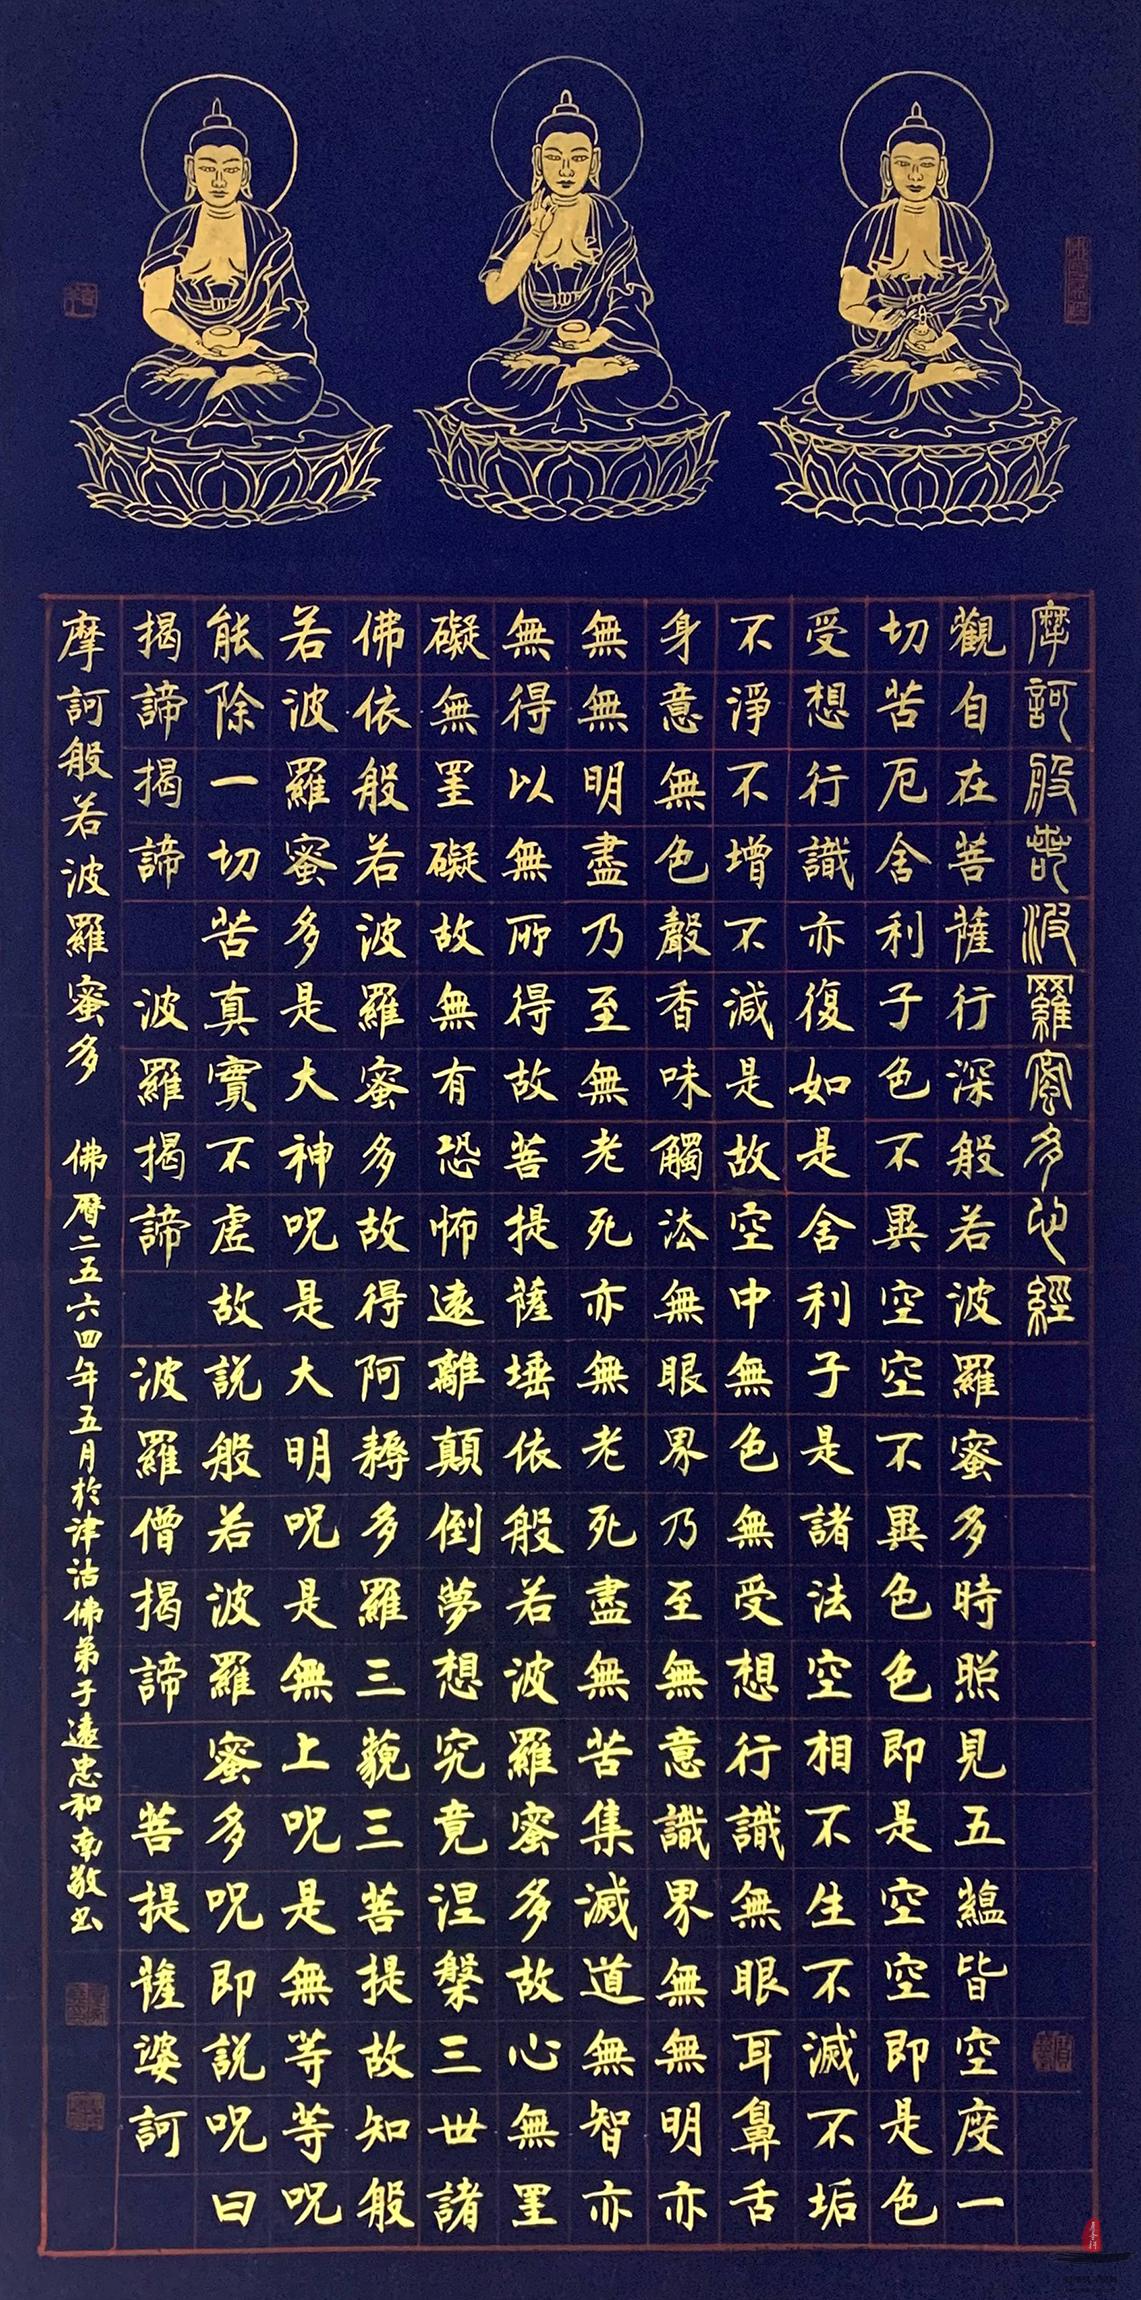 摩訶般若波羅蜜多心經
觀自在菩薩行深般若波羅蜜多時照見五蘊皆空度一
切苦厄舍利子色不異空空不異色色即是空空即是色
受想行識亦復如是舍利子是諸法空相不生不滅不垢
不淨不增不減是故空中無色無受想行識無眼耳鼻舌
身意無色聲香味觸法無眼界乃至無意識界無無明亦
無無明盡乃至無老死亦無老死盡無苦集滅道無智亦
無得以無所得故菩提薩埵依般若波羅蜜多故心無罣
礙無罣礙故無有恐怖遠離顛倒夢想究竟涅槃三世諸
佛依般若波羅蜜多故得阿耨多羅三藐三菩提故知般
若波羅蜜多是大神呪是大明呪是無上呪是無等等呪
能除一切苦真實不虛故說般若波羅蜜多呪即說呪曰
揭諦揭諦 波羅揭諦 波羅僧揭諦 菩提薩婆訶
摩訶般若波羅蜜多 佛曆二五六四年五月於津沽佛弟子遠忠和南敬書